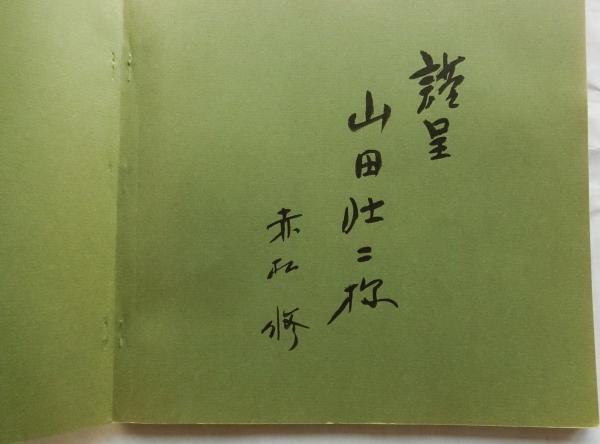 謹呈
山田壮二様
赤松修